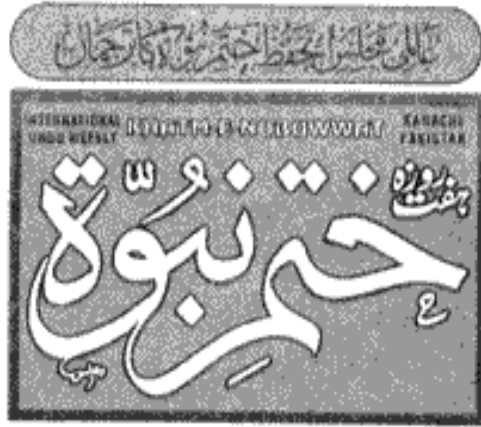 عالمی مجلس تحفظ ختم نبوۃ کا ترجمان
INTERNATIONAL URDU WEEKLY
KHATM-E-NUBUWWAT
KARACHI PAKISTAN
ہفت روزہ
ختم نبوّۃ